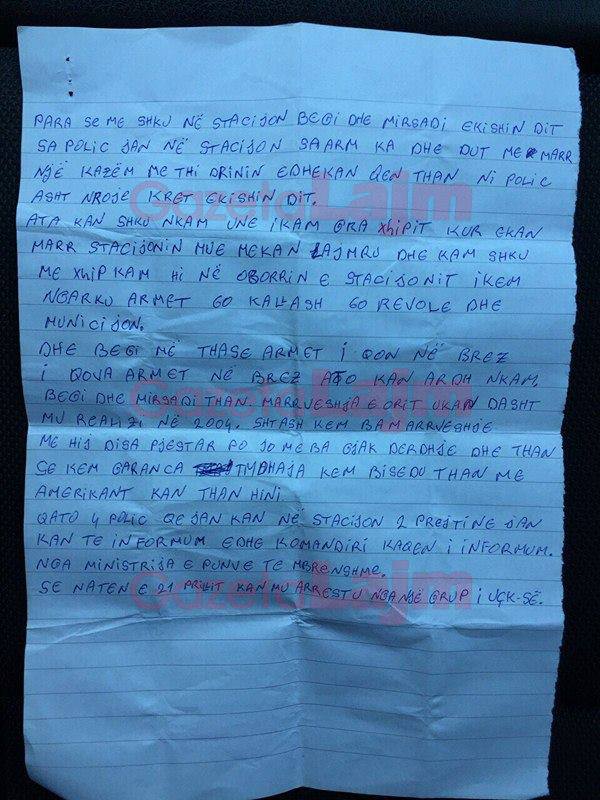 PARA SE ME SHKU NË STACIJON BEGI DHE MIRSADI EKISHIN DIT
SA POLIC JAN NË STACIJON SA ARM KA DHE DUT ME MARR
NJË KAZËM ME THI DRININ EDHEKAN QEN THAN NI POLIC
ASHT NROJE KRET EKISHIN DIT.
ATA KAN SHKU NKAM UNE IKAM QRA XHIPIT KUR EKAN
MARR STACIJONIN MUE MEKAN LAJMRU DHE KAM SHKU
ME XHIP KAM HI NË OBORRIN E STACIJONIT IKEM
NGARKU ARMET 60 KALLASH 60 REVOLE DHE
MUNICIJON.
DHE BEGI MË THASE ARMET I QON NË BREZ
I QOVA ARMET NË BREZ ATO KAN ARDH NKAM.
BEGI DHE MIRSADI THAN MARRVESHJA E DRIT UKAN DASHT
MU REALIZI NË 2004. SHTASH KEM BAMARRVESHJE
ME HIJ DISA PJESTAR PO JO ME BA GJAK DERDHJE DHE THAN
ÇE KEM GARANCA TMDHAJA KEM BISEDU THAN ME
AMERIKANT KAN THAN HINI.
QATO 4 POLIC QE JAN KAN NË STACIJON 2 PREJTINE JAN
KAN TE INFORMUM EDHE KOMANDIRI KAQEN I INFORMUM.
NGA MINISTRIJA E PUNVE TE MBRENSHME.
SE NATEN E 21 PRILLIT KAN MU ARRESTU NGA NJË GRUP I UÇK-SË.
GazetaLajm
GazetaLajm
GazetaLajm